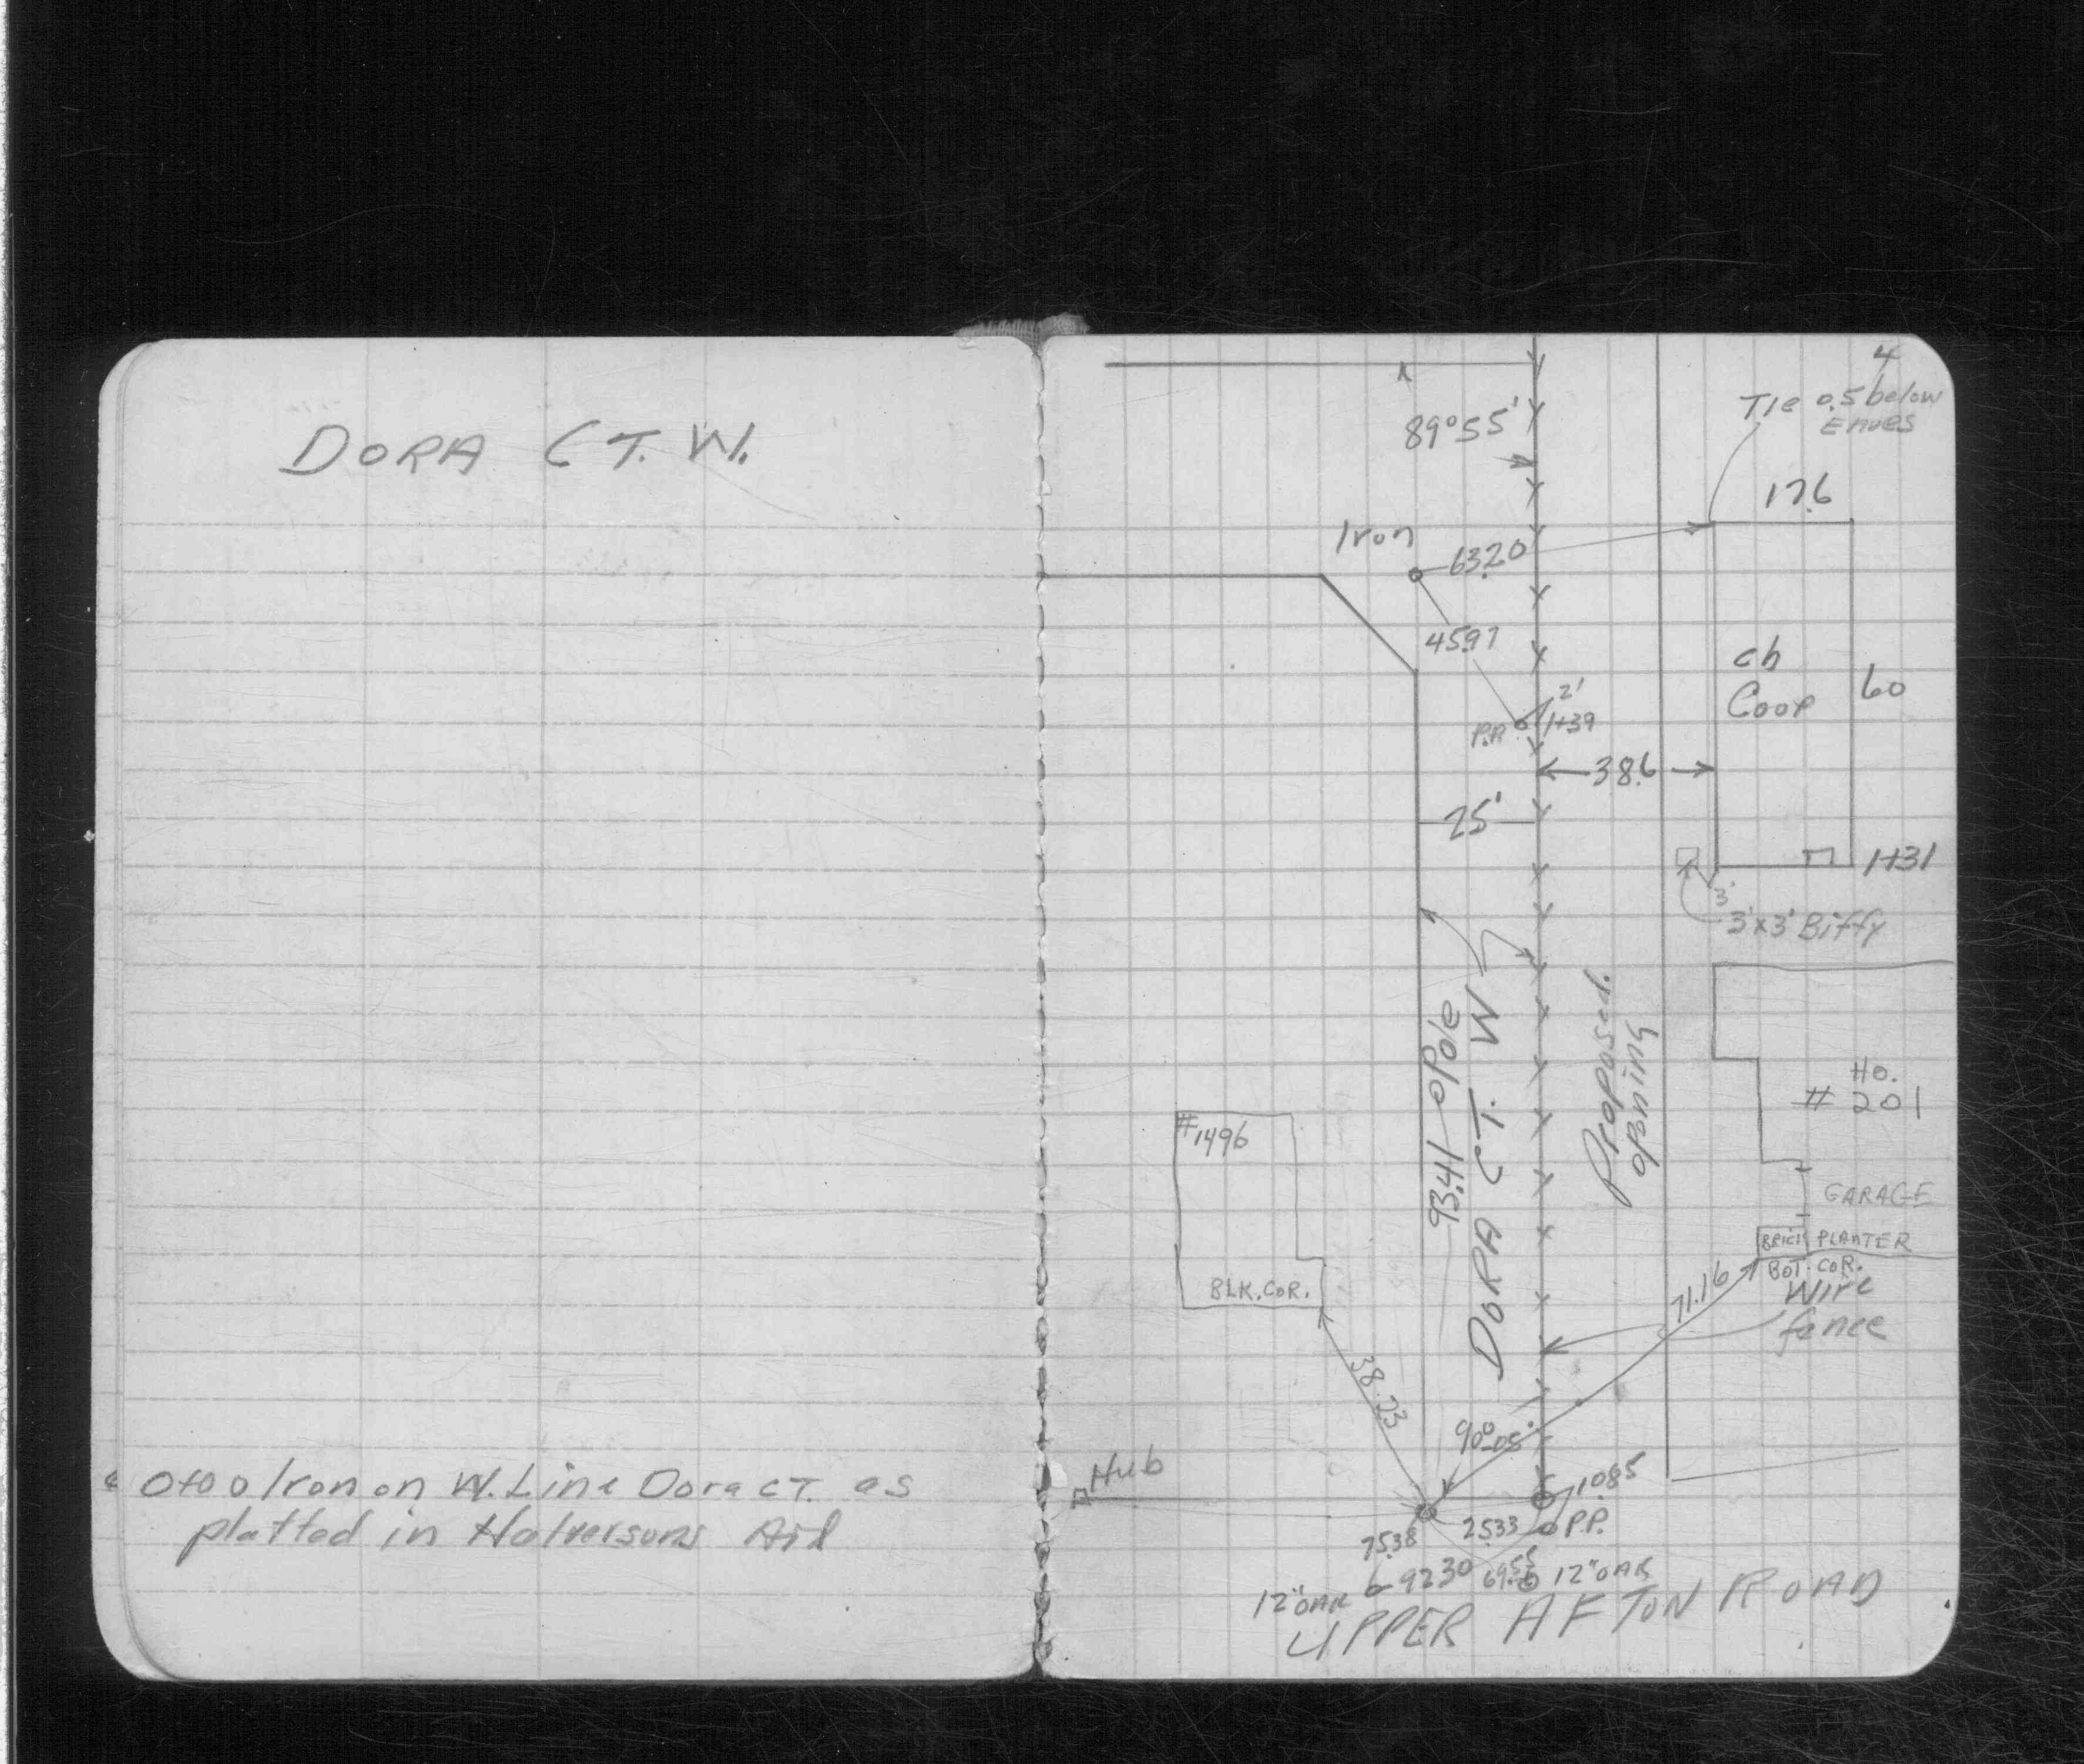 DORA CT. W.
0+00 Iron on W. Line Dora CT. as
platted in Halversons Ad
4
Tie 0.5 below
Eaves
89°55'
17.6
Iron
63.20
45.97
ch
Coop
60
2'
P.P.
1+39
38.6
25'
1+31
3'
3'x3' Biffy
93.41 Pole
DORA CT. W
Proposed.
opaning
Ho.
# 201
#1496
GARAGE
BRICK PLANTER
BOT. COR.
BLK. COR.
71.16
Wire
fence
38.23
90°05'
Hub
10.85
75.38
25.33
P.P.
12" OAK
92.30
69.55
12" OAK
UPPER AFTON ROAD